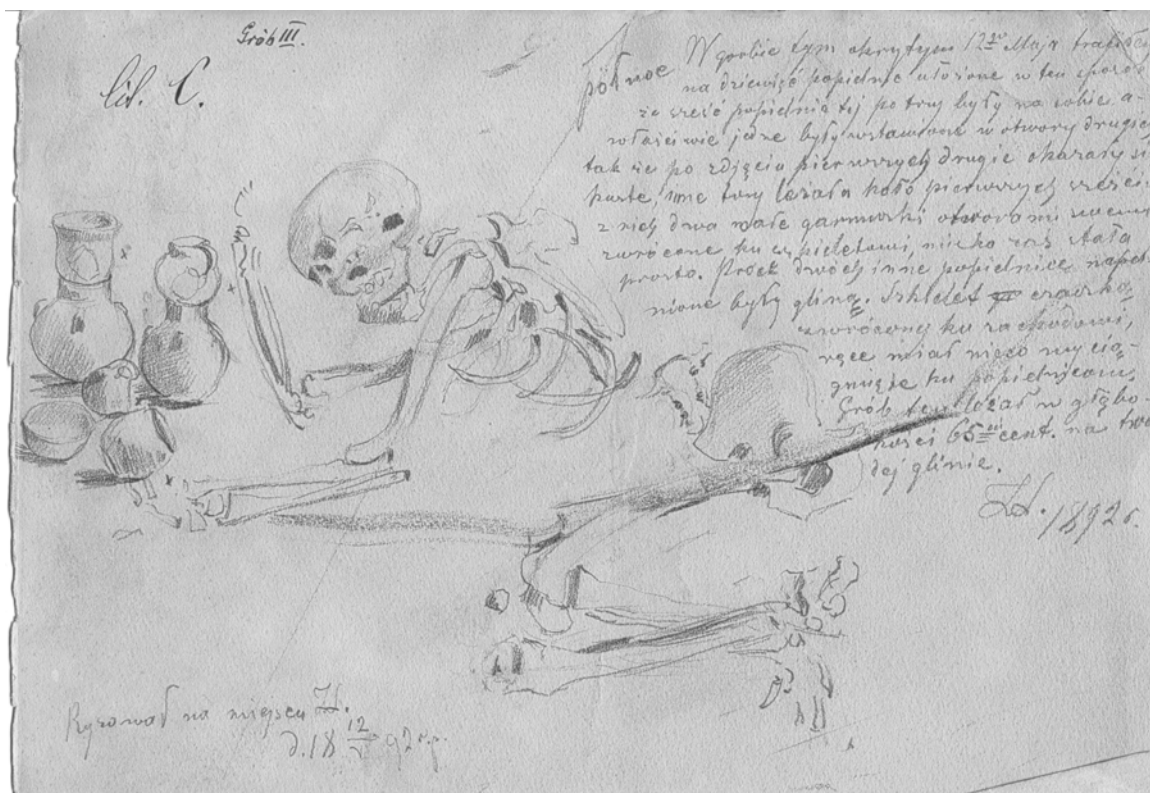 Grób III.
lit. C.
północ
W grobie tym okrytym 12go Maja trafiłem
na dziewięć popielnic ułożone w ten sposób
że sześć popielnic tej po trzy były na sobie a-
właściwie jedne były wstawione w otwory drugich
tak że po zdjęciu pierwszych drugie okazały się
inne trzy leżały koło pierwszych sześciu
z nich dwa małe garnuszki otworami
zwrócone ku szkieletowi, zaś stała
prosto. Prócz dwóch inne popielnice napeł-
nione były gliną. Szkielet czaszką
zwróconą ku zachodowi,
ręce miał nieco wycią-
gnięte ku popielnicom.
Grób ten leżał w głębo-
kości 65 cent. na twar
dej glinie.
1892 r.
Rysował na miejscu
d. 18 12/V 92 r.